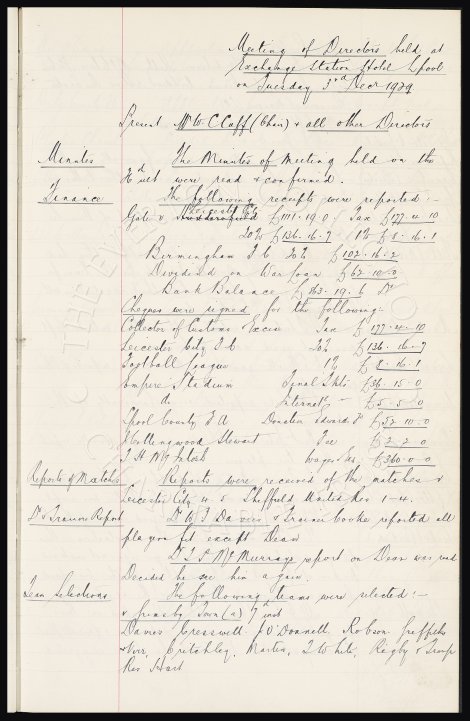 Meeting of Directors held at
Exchange Station Hotel Lpool
on Tuesday 3rd Decr 1929
Present Mr W C Cuff (Chair) & all other Directors
Minutes The Minutes of Meeting held on the
ult were read & confirmed.
Finance The following receipts were reported :-
Gate v Leicester City £1111.19.0 Tax £177.4.10
20% £136.16.7 1% £8.16.1
Birmingham F C 20% £102.16.2
Dividend on War Loan £62.10.0
Bank Balance Dr
Cheques were signed for the following:-
Collector of Customs Excise Tax £177.4.10
Leicester City F C 20% £136.16.7
Football League 1% £8.16.1
Empire Stadium Final Tkts £36.15.0
do Internatl " £5.5.0
Lpool County F A Donation £52.10.0
Hollingwood Stewart Fee £2.2.0
T H McIntosh Wages &c. £360.0.0
Reports of Matches Reports were received of the matches v
Leicester City 4-5 Sheffield United Res 1-4.
Dr & Trainers Report Dr W J Davies & Trainer Cooke reported all
players fit except Dean
Dr McMurray's report on Dean was read
Decided he see him again.
Team Selections The following teams were selected :-
v Grimsby Town (a) 7th inst
Davies Cresswell & O'Donnell, Robson Griffiths
& Virr, Critchley, Martin, White, Rigby & Troup
Res Hart